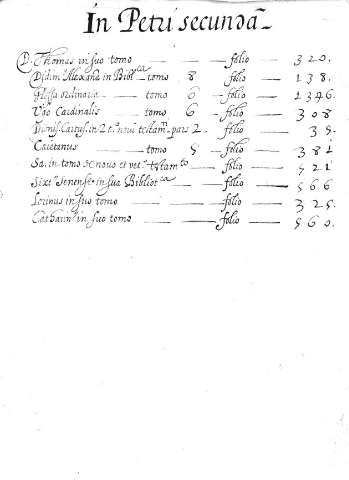 In Petri secundā
D. Thomas in suo tomo — folio — 320.
Didim Alexand in Bibl.ca tomo 8 — folio — 138.
Glossa ordinaria — tomo 6 — folio — 1346.
Vgo Cardinalis — tomo 6 — folio — 308
Dionis. Cartus. in 2 t.o noui testam. pars 2. folio — 35.
Caietanus — tomo 5 — folio — 381
Sa. in tomo se nouo et vet. testam.to — folio — 521
Sixt Senense in sua Bibliot.ca — folio — 566
Lorinus in suo tomo — folio — 325.
Catharin in suo tomo — folio — 560.